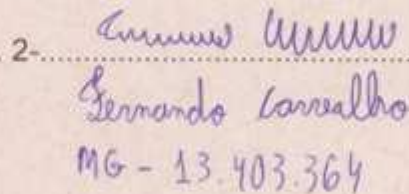 2-
Fernando Carvalho
MG - 13.403.364